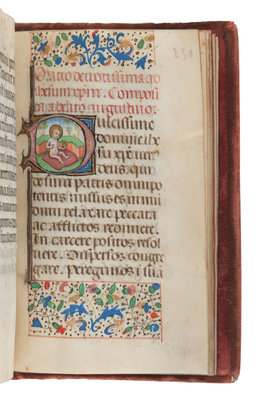 230
Oratio deuotissima ad
ihesum xpm. Composit
a beato augustino.
Dulcissime
domine ihu
xpe uer
deus, qui
de sinu patris omnipo
tentis missus es in mu
dum relaxare peccata
afflictos redimere.
In carcere positos resol
uere. Dispersos congre
gare. peregrinos i sua